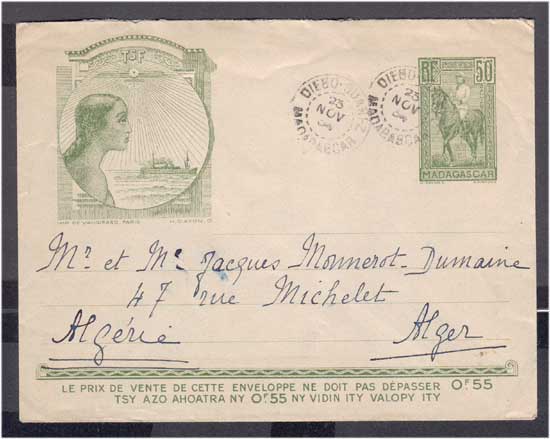 TSF
IMP. DE VAUGIRARD, PARIS
H. CAYON, D.
DIEGO-SUAREZ
23
NOV
MADAGASCAR
DIEGO
23
NOV
MADAGASCAR
RF
50c
MADAGASCAR
Mr et Me Jacques Monnerot-Dumaine
47 rue Michelet
Algérie Alger
LE PRIX DE VENTE DE CETTE ENVELOPPE NE DOIT PAS DÉPASSER 0F55
TSY AZO AHOATRA NY 0F55 NY VIDIN ITY VALOPY ITY